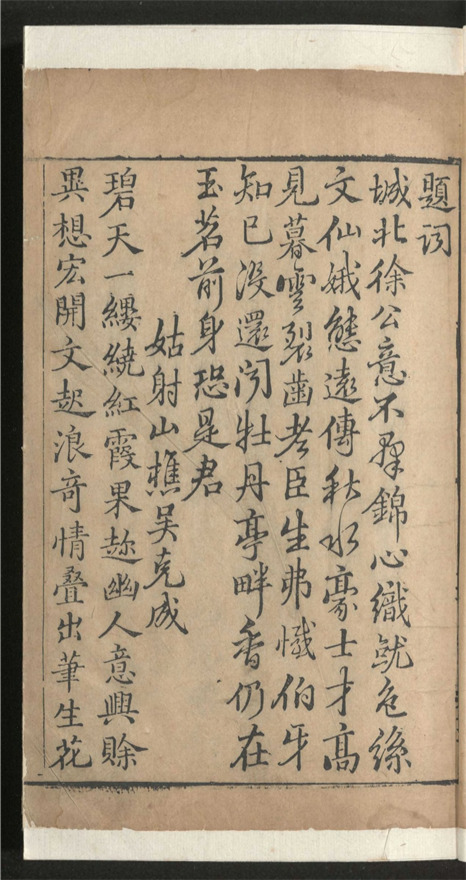 題詞
城北徐公意不群錦心織就色絲
文仙娥態遠傳秋水豪士才高
見暮雲裂齒老臣生弗憾伯牙
知已没還聞牡丹亭畔香仍在
玉茗前身恐是君
姑射山樵吴克成
碧天一縷繞紅霞果趂幽人意興賒
異想宏開文起浪奇情叠出筆生花